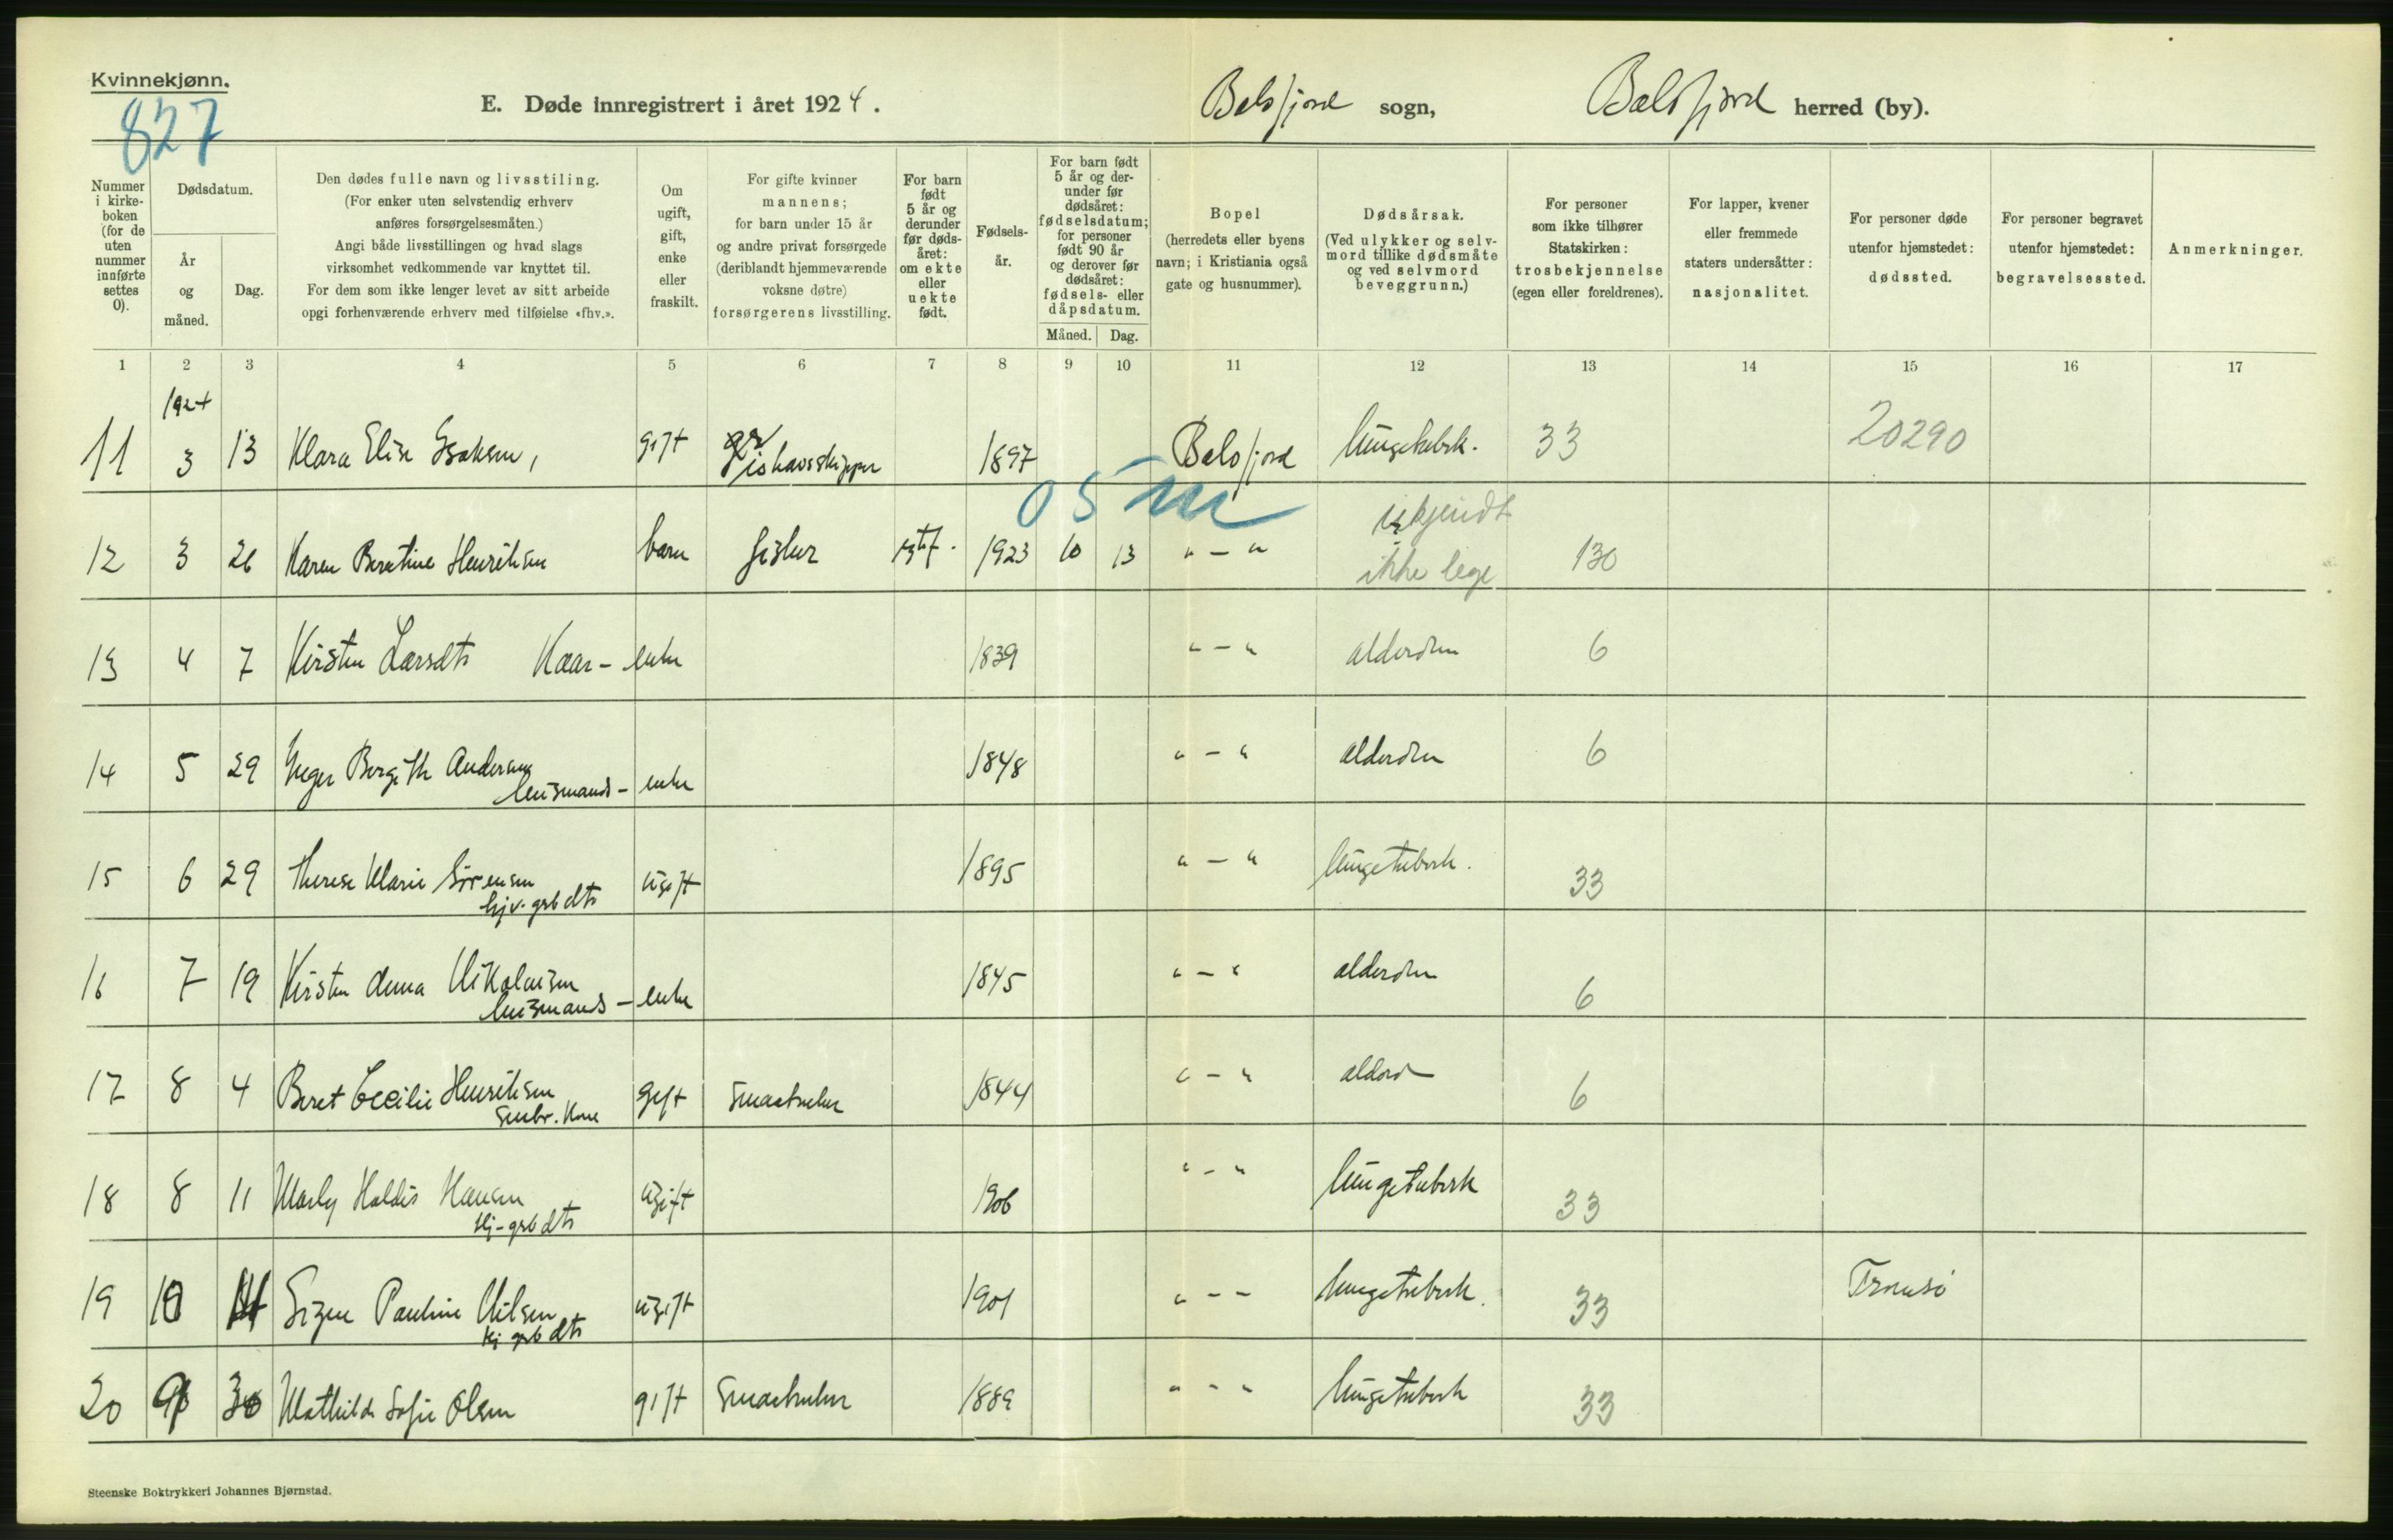 Kvinnekjønn.
827
E. Døde innregistrert i året 1924.
Balsfjord sogn,
Balsfjord herred (by).
Nummer i kirke-boken (for de uten nummer innførte settes 0).
Dødsdatum.
År og måned.
Dag.
Den dødes fulle navn og livsstiling.
(For enker uten selvstendig erhverv
anføres forsørgelsesmåten.)
Angi både livsstillingen og hvad slags
virksomhet vedkommende var knyttet til.
For dem som ikke lenger levet av sitt arbeide
opgi forhenværende erhverv med tilføielse «fhv.».
Om ugift, gift, enke eller fraskilt.
For gifte kvinner
mannens;
for barn under 15 år
og andre privat forsørgede
(deriblandt hjemmeværende
voksne døtre)
forsørgerens livsstilling.
For barn født 5 år og derunder før døds-året: om ekte eller uekte født.
Fødsels-år.
For barn født
5 år og der-
under før
dødsåret:
fødselsdatum;
for personer
født 90 år
og derover før
dødsåret:
fødsels- eller
dåpsdatum.
Måned. Dag.
Bopel
(herredets eller byens
navn; i Kristiania også
gate og husnummer).
Dødsårsak.
(Ved ulykker og selv-
mord tillike dødsmåte
og ved selvmord
beveggrunn.)
For personer
som ikke tilhører
Statskirken:
trosbekjennelse
(egen eller foreldrenes).
For lapper, kvener
eller fremmede
staters undersåtter:
nasjonalitet.
For personer døde
utenfor hjemstedet:
dødssted.
For personer begravet
utenfor hjemstedet:
begravelsessted.
Anmerkninger.
1 2 3 4 5 6 7 8 9 10 11 12 13 14 15 16 17
1924
11 3 13 Klara Elise Isaksen, gift ishavsskipper 1897 Balsfjord lungetubrk. 33 20290
05
12 3 26 Karen Berntine Henriksen barn fisker 1923 10 13 " - " ukjendt
ikke lege 130
13 4 7 Kirsten Larsdtr Kaar- enke 1839 " - " alderdom 6
14 5 29 Inger Bergith Andersen
husmands- enke 1848 " - " alderdom 6
15 6 29 Therese Marie Sørensen
hjv. grb dtr ugift 1895 " - " lungetuberk. 33
16 7 19 Kirsten Anna Nikolaisen
husmands- enke 1845 " - " alderdom 6
17 8 4 Beret Cecilie Henriksen
smbr. kone gift smaabruker 1844 " - " alderd 6
18 8 11 Marly Haldis Hansen
Hj-grb dtr ugift 1906 " - " lungetuberk 33
19 10 Signe Pauline Nilsen
hj grb dtr ugift 1901 " - - lungetuberk. 33 Tromsø
20 9 30 Mathilde Sofie Olsen gift smaabruker 1889 " - " lungetuberk 33
Steenske Boktrykkeri Johannes Bjørnstad.